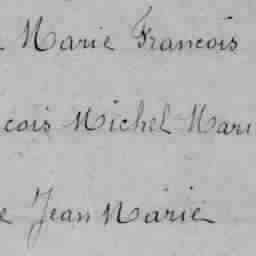 Marie Francois
cois Michel Mari
e Jean Marie